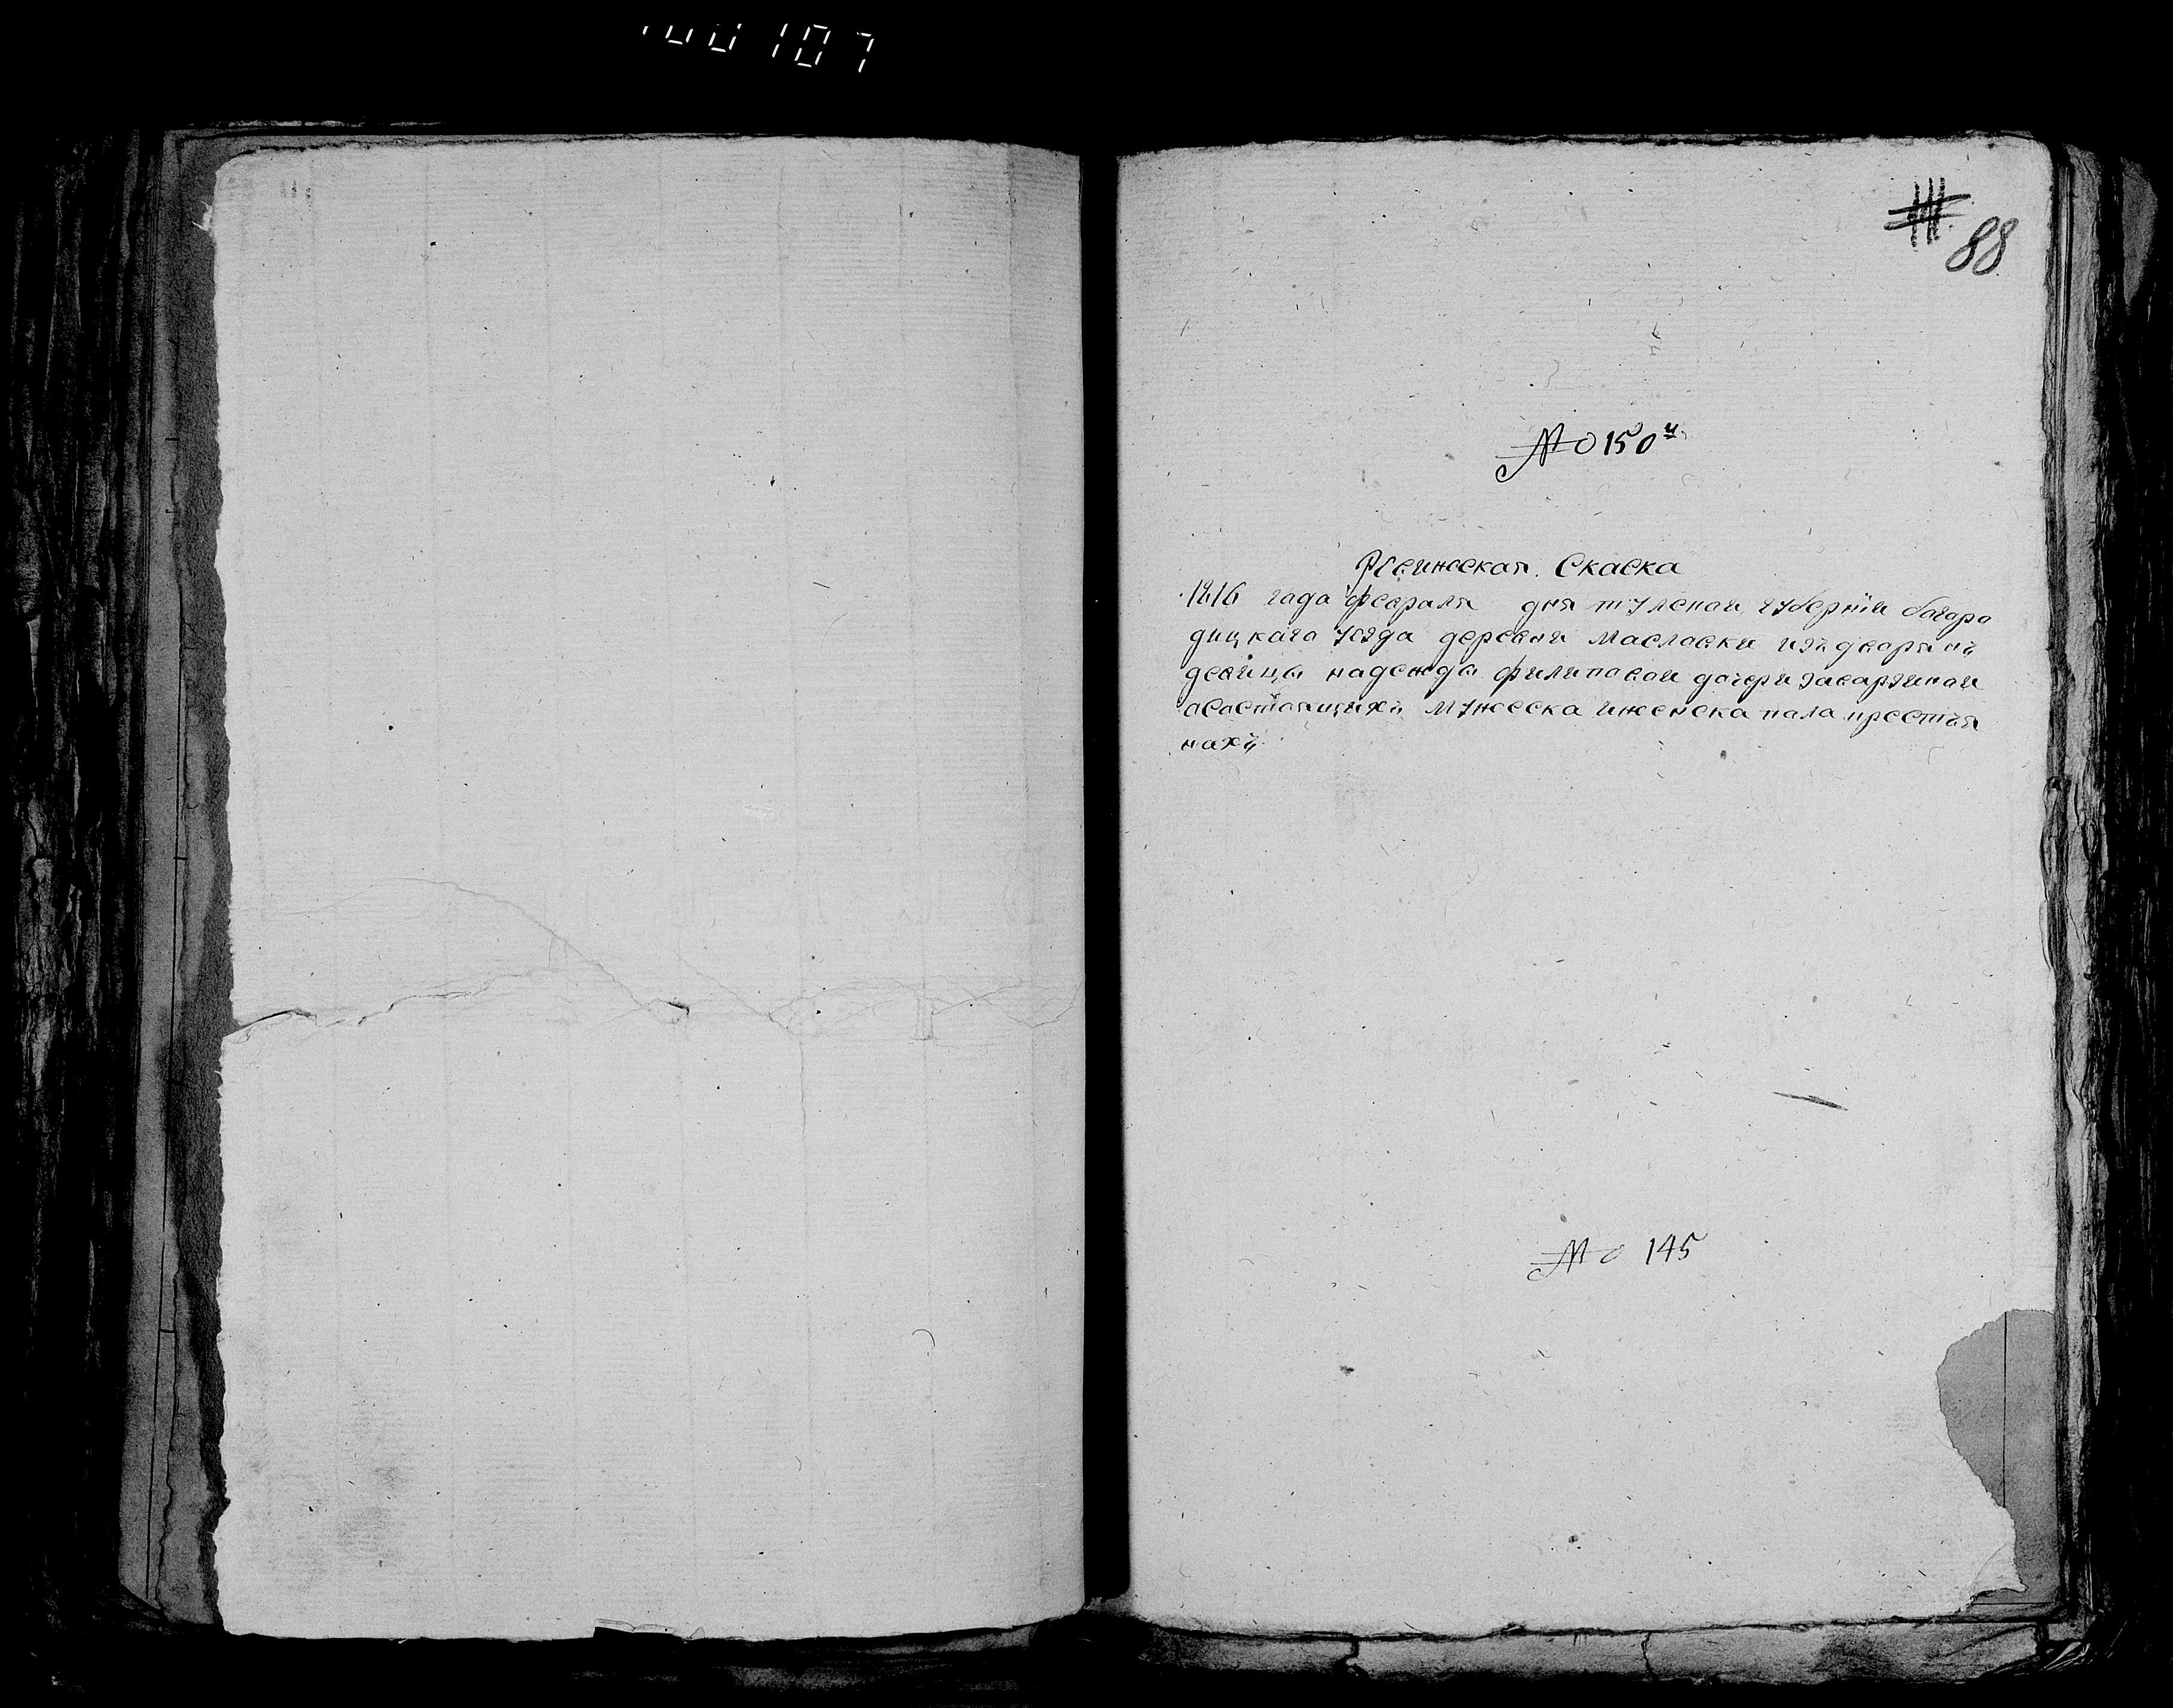 100107
111. 88
№ 150й
Ревижская. Скаска
1816 года февраля дня тулской губернiи богоро
дицкаго уезда деревни Масловки изъ дворянъ
девицы надежды филиповой дочери
осостоящихъ мужеска иженска пола крестья
нахъ
№ 145